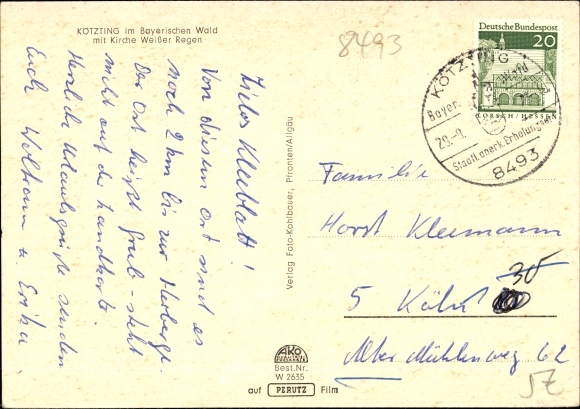 KÖTZTING im Bayerischen Wald
mit Kirche Weißer Regen
Liebes Kleeblatt!
Von diesem Ort sind es
noch 2 km bis zur Herberge.
Der Ort heißt Grub - steht
nicht auf der Landkarte.
Herzliche Urlaubsgrüße senden
Euch Woltram u. Erika.
Verlag Foto-Kohlbauer, Pfronten/Allgäu
AKO
Best.Nr.
W 2635
auf PERUTZ Film
8493
Deutsche Bundespost
20
LORSCH/HESSEN
KÖTZTING
Bayer. Wald
29.-8.
Staatl. anerk. Erholungsort
8493
Familie
Horst Kleemann
5 Köln 30
Alter Mühlenweg 62